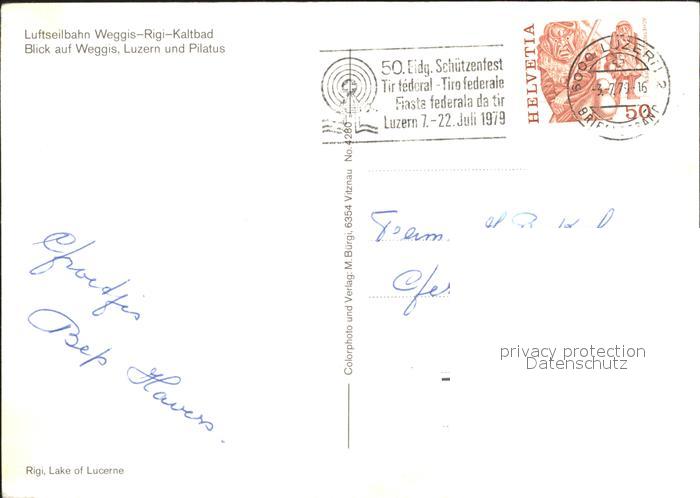 Luftseilbahn Weggis–Rigi–Kaltbad
Blick auf Weggis, Luzern und Pilatus
50. Eidg. Schützenfest
Tir fédéral - Tiro federale
Fiasta federala da tir
Luzern 7.–22. Juli 1979
HELVETIA
50
6000 LUZERN 2
-3.7.79-16
Colorphoto und Verlag: M. Bürgi, 6354 Vitznau No. 4280
Fam.
Groetjes
Bep Havers.
privacy protection
Datenschutz
Rigi, Lake of Lucerne